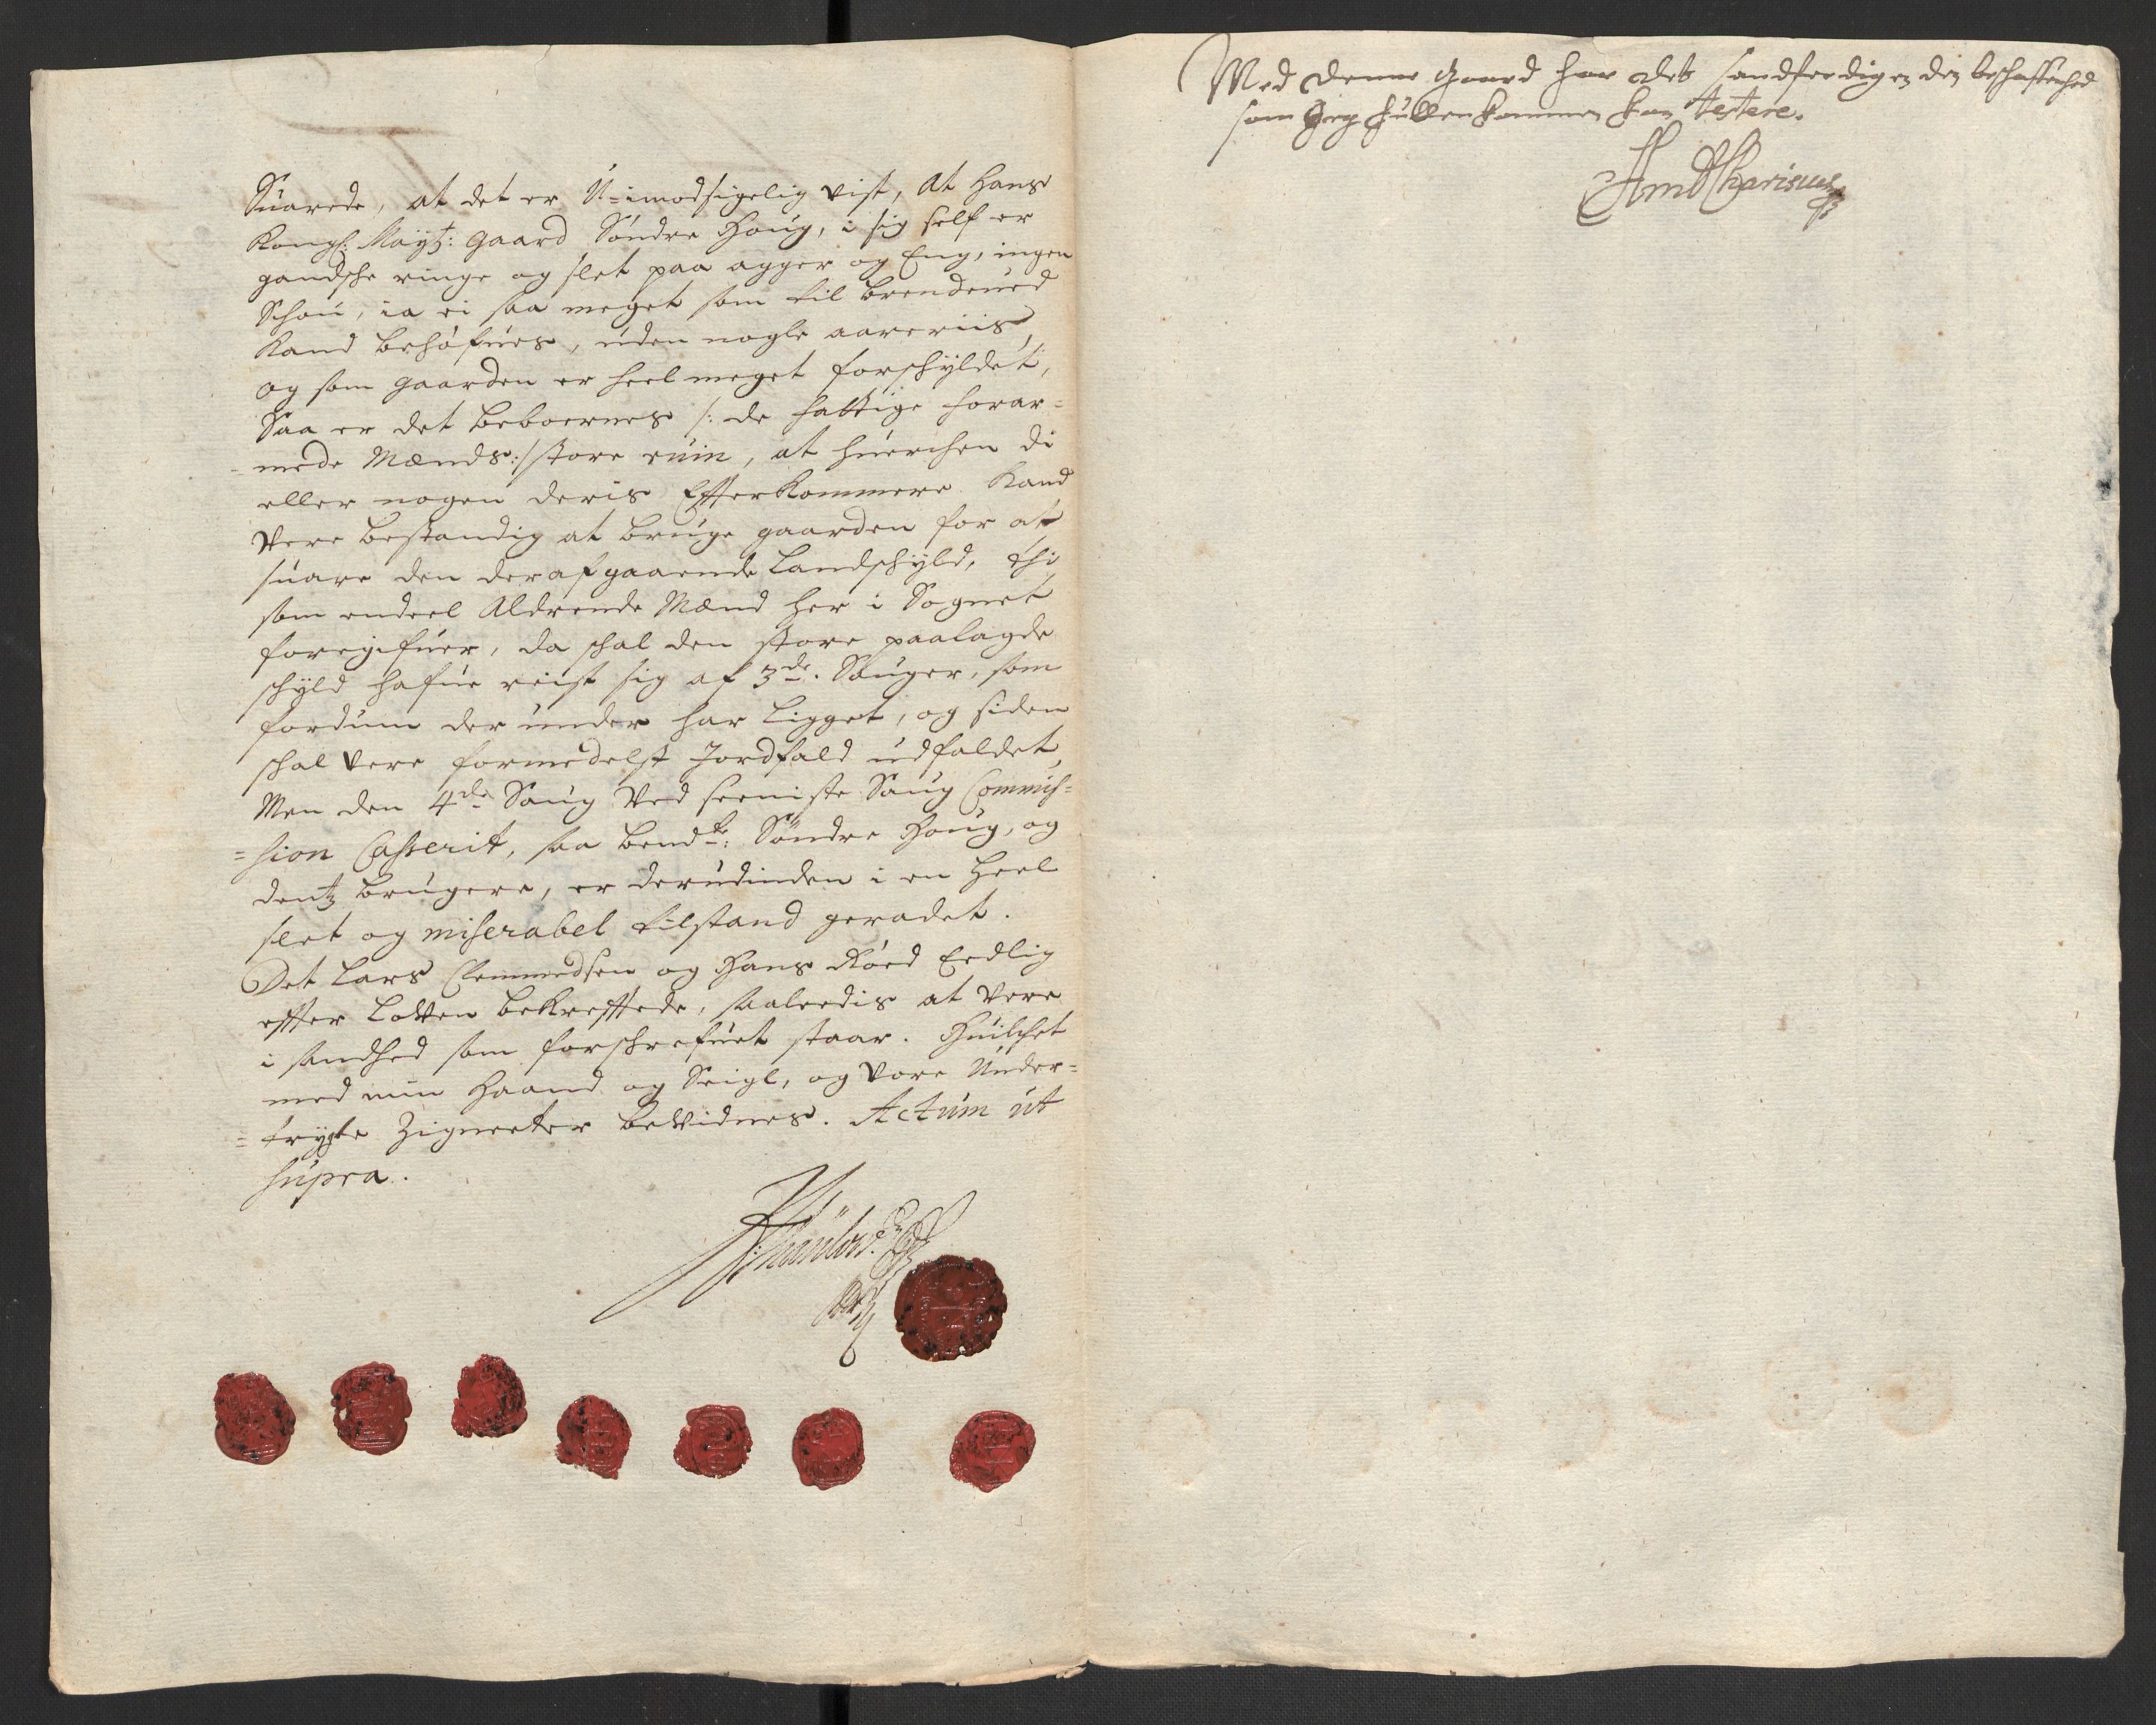 Suarede, at det er U-imodsigelig vist, At Hans
Kongl: Maytz: gaard Söndre Houg, i sig self er
gandsche ringe og slet paa agger og Eng, ingen
Schou, ia ei saa meget som til brendeved
Kand behöfues, uden nogle aareriis,
og som gaarden er heel meget forschyldet,
Saa er det beboernes /: de fattige forar-
-mede Mænds:/ store ruin, at huerchen di
eller nogen deris Efterkommere Kand
Vere bestandig at bruge gaarden for at
suare den deraf gaaende Landschyld, thi
som endeel Aldrende Mænd her i Sognet
foregifuer, da schal den store paalagde
schyld hafue reist sig af 3de. Sauger, som
fordum der under har ligget, og siden
schal vere formedelst Jordfald udfaldet,
Men den 4de Saug Ved seeniste Saug Commis-
=sion Casserit, saa bemdte: Söndre Houg, og
dentz brugere, er derudinden i en heel
slet og miserabel tilstand geradet.
Det Lars Clemmedsen og Hans Röed Eedlig
effter Lowen bekrefftede, saaleedis at vere
i sandhed som forschrefuet staar. Huilchet
med min Haand og Seigl, og vore Under-
=trygte Zigneeter bevidnes. Actum ut
supra.
Med denne Gaard har det sandferdigen den beschaffenhed
som Jeg fuldenkommen kan testere.